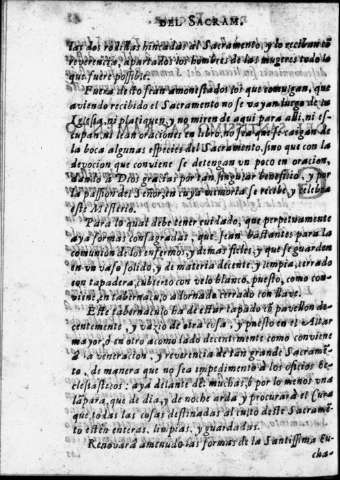 DEL SACRAM.
las dos rodillas hincadas al Sacramento, y lo reciban cõ
reverencia, apartados los hombres de las mugeres todo lo
que fuere possible.
Fuera desto sean amonestados los que comulgan, que
aviendo recibido el Sacramento no se vayan luego de la
Iglesia, ni platiquen, y no miren de aqui para alli, ni es-
cupan, ni lean oraciones en libro, no sea que se caigan de
la boca algunas especies del Sacramento, sino que con la
devocion que conviene se detengan un poco en oracion,
dando a Dios gracias por tan singular beneficio, y por
la passion del Señor, en cuya memoria se recibe, y celebra
este Misterio.
Para lo qual debe tener cuidado, que perpetuamente
aya formas consagradas, que sean bastantes para la
comunion de los enfermos, y demas fieles, y que se guarden
en un vaso solido, y de materia decente, y limpia, cerrado
con tapadera, cubierto con velo blanco, puesto, como con-
viene, en tabernaculo adornado cerrado con llave.
Este tabernaculo ha de estar tapado cõ pavellon de-
centemente, y vazio de otra cosa, y puesto en el Altar
mayor, ò en otro acomodado decentemente como conviene
a la veneracion, y reverencia de tan grande Sacramẽ-
to, de manera que no sea impedimento a los oficios Ec-
clesiasticos: aya delante del muchas, ò por lo menos una
lãpara, que de dia, y de noche arda y procurarà el Cura
que todas las cosas destinadas al culto deste Sacramẽ-
to estèn enteras, limpias, y guardadas.
Renovarà amenudo las formas de la Santissima Eu-
cha-